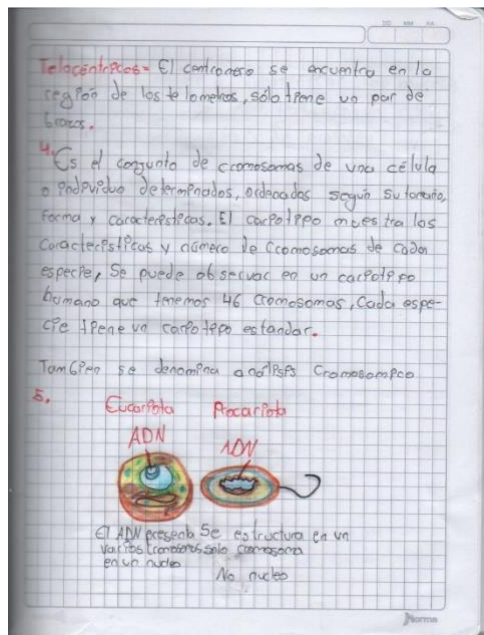 Telocéntricos = El centromero se encuentra en la
región de los telomeros, sólo tiene un par de
brazos.
4. Es el conjunto de cromosomas de una célula
o individuo determinados, ordenados según su tamaño,
forma y características. El cariotipo muestra las
características y número de cromosomas de cada
especie, Se puede observar en un cariotipo
humano que tenemos 46 cromosomas, Cada espe-
cie tiene un cariotipo estandar.
Tambien se denomina análisis Cromosomico
5.
Eucariota Procariota
ADN ADN
El ADN presenta Se estructura en un
varios cromosomas solo cromosoma
en un nucleo
No nucleo
Norma